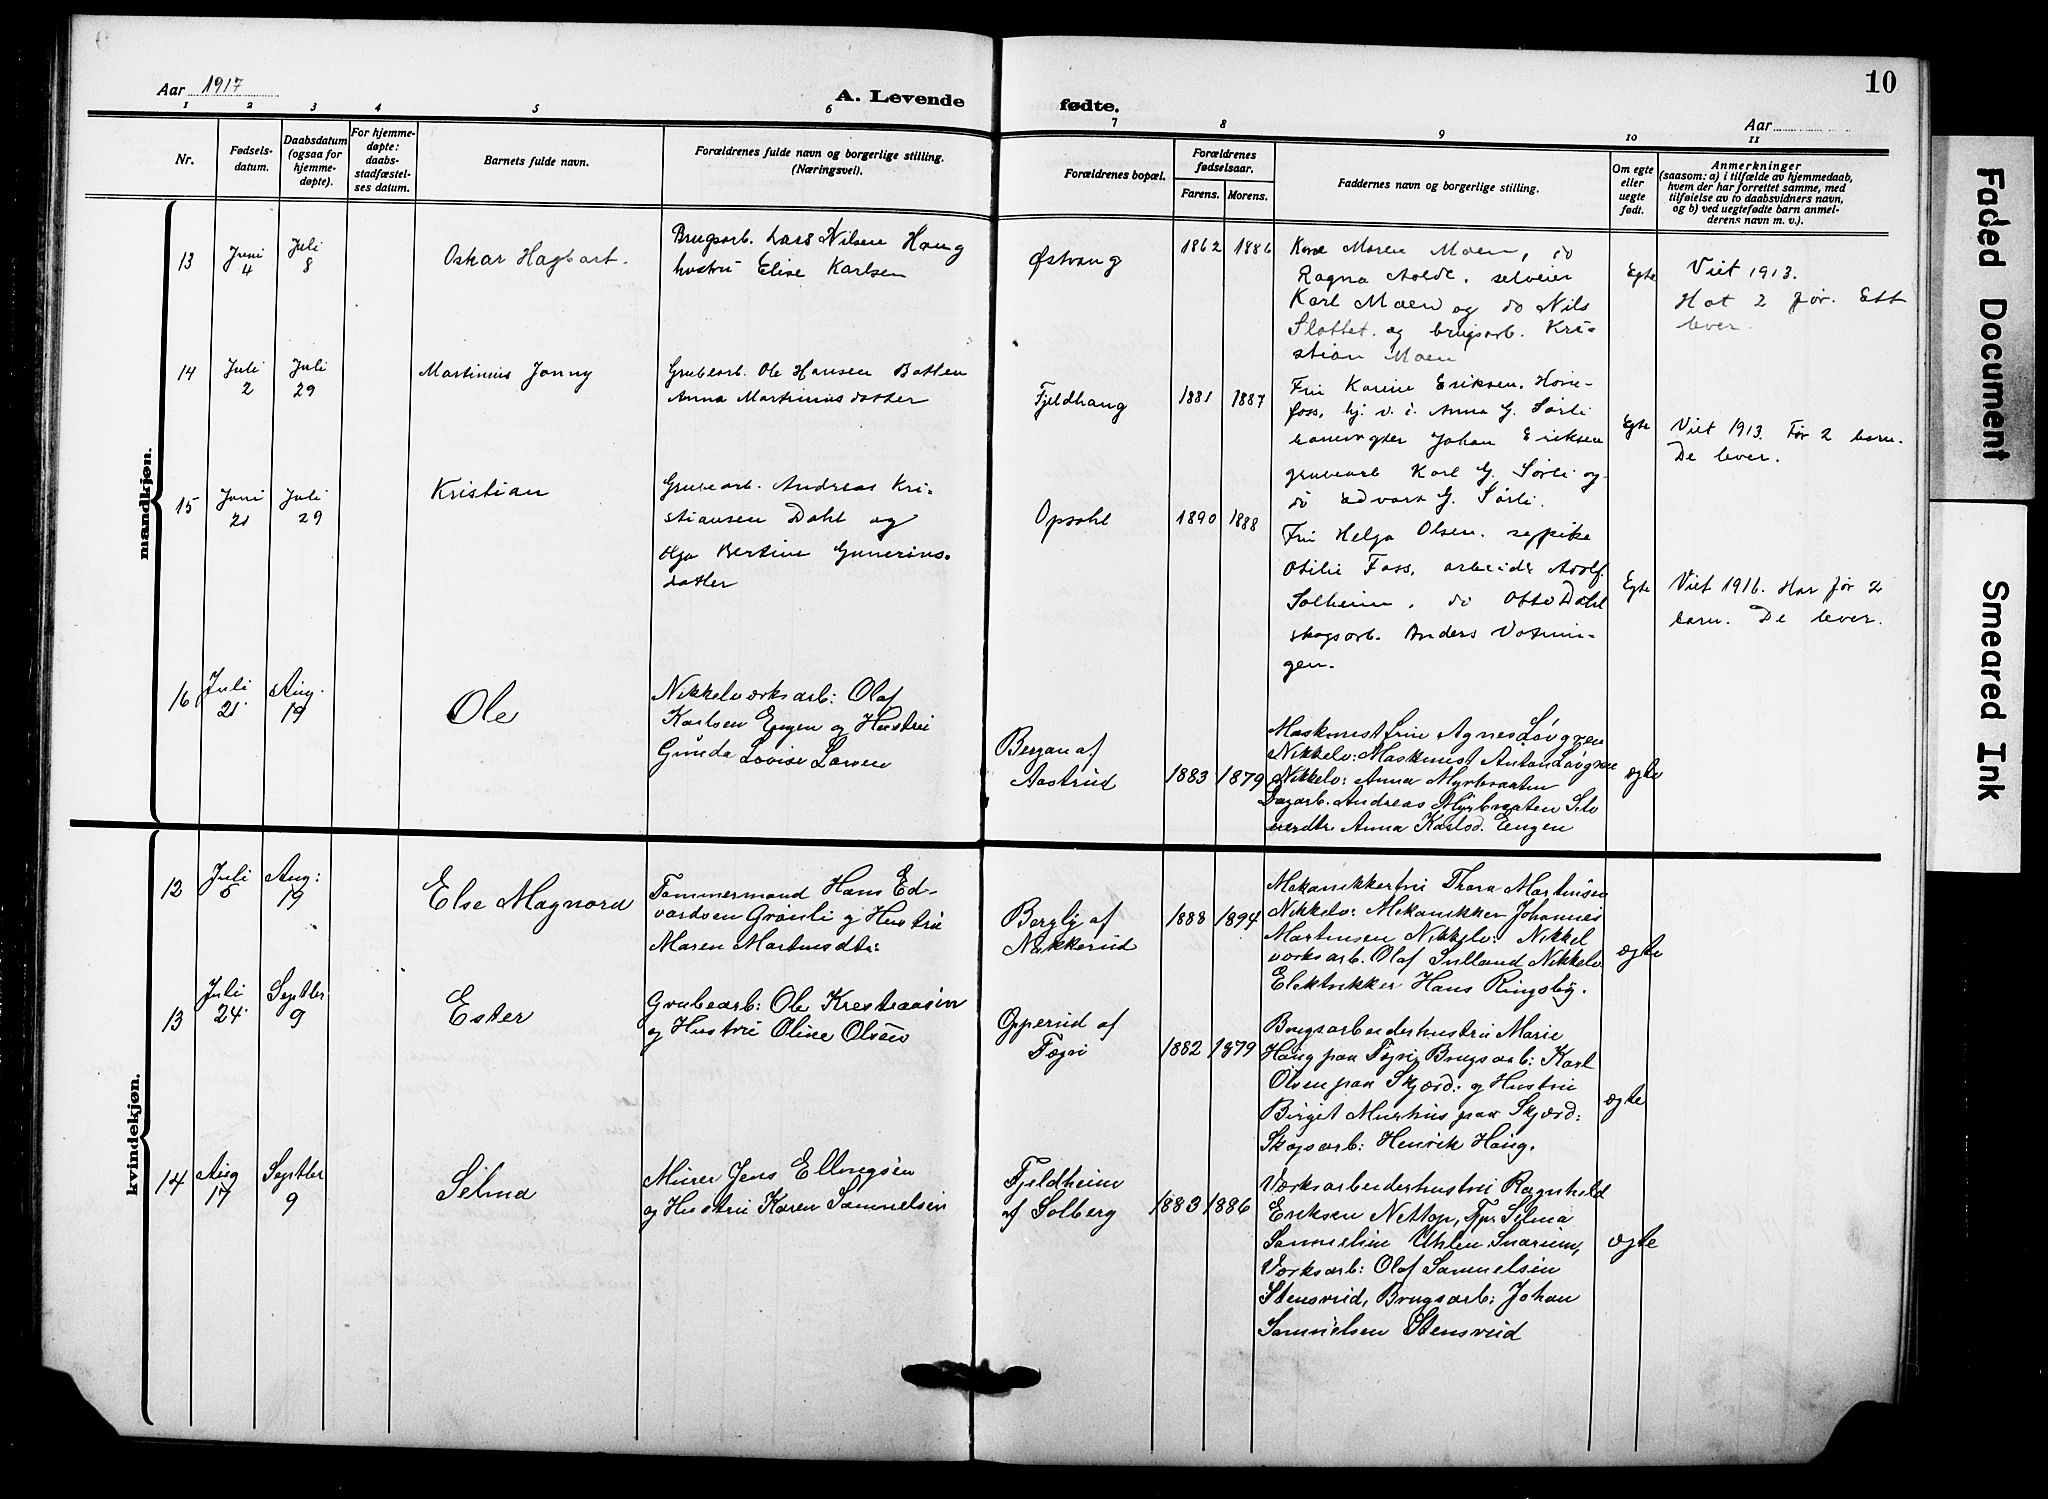 10
Aar 1917
A. Levende fødte.
Aar
1 2 3 4 5 6 7 8 9 10 11
Nr.
Fødsels-
datum.
Daabsdatum
(ogsaa for
hjemme-
døpte).
For hjemme-
døpte:
daabs-
stadfæstel-
ses datum.
Barnets fulde navn.
Forældrenes fulde navn og borgerlige stilling.
(Næringsvei).
Forældrenes bopæl.
Forældrenes
fødselsaar.
Farens. Morens.
Faddernes navn og borgerlige stilling.
Om egte
eller
uegte
født.
Anmerkninger
(saasom: a) i tilfælde av hjemmedaab,
hvem der har forrettet samme, med
tilføielse av to daabsvidners navn,
og b) ved uegtefødte barn anmel-
derens navn m. v.).
mandkjøn.
13
Juni
4
Juli
8
Oskar Hagbart.
Brugsarb. Lars Nilsen Haug
hustru Elise Karlsen
Østvang
1862 1886
Kone Maren Moen, do
Ragna Aolde, selveier
Karl Moen og do Nils
Slottet og brugsarb. Kri-
stian Moen
Egte
Viet 1913.
Hat 2 før. Ett
lever.
14
Juli
2
Juli
29
Martinius Jonny
Grubearb. Ole Hansen Batten
Anna Martiniusdatter
Fjeldhaug
1881 1887
Fru Karine Eriksen, Høne-
foss, hj. v. i. Anna G. Sørli
banevogter Johan Eriksen
grubearb Karl G. Sørli og
do Edvart G. Sørli.
Egte
Viet 1913. Før 2 barn.
De lever.
15
Juni
21
Juli
29
Kristian
Grubearb. Andreas Kri-
stiansen Dahl og
Olga Bertine Gunerius-
datter
Opsahl
1890 1888
Fru Helga Olsen,
Otilie Foss, arbeider Adolf
Solheim, do Otto Dahl
skogsarb. Anders
gen.
Egte
Viet 1916. Har før 2
barn. De lever.
16
Juli
21.
Aug.
19
Ole
Nikkelværksarb: Olaf
Karlsen Engen og Hustru
Gunda Lovise Larsen
Bergan af
Aastrud
1883 1879
Maskinist Frue Agnes Løvgren
Nikkelv: Maskinist Anton Løvgren
Nikkelv: Anna Myrbraaten
Dagarb. Andreas Myrbraaten
Anna Karlsd. Engen
ægte
kvindekjøn.
12
Juli
8
Aug:
19
Else Magnora
Tømmermand Hans Ed-
vardsen Grønli og Hustru
Maren Martinsdtr:
Bergly af
Nakkerud
1888 1894
Mekanikkerfru Thora Martinsen
Nikkelv: Mekanikker Johannes
Martinsen Nikkelv: Nikkel
værksarb. Olaf Sulland Nikkelv
Elektrikker Hans Ringsby.
ægte
13
Juli
24.
Septbr
9
Ester
Grubearb: Ole Kristiansen
og Hustru Oline Olsen
Opperud af
Tægri
1882 1879
Brugsarbeiderhustru Marie
Haug paa Tøgri, Brugsarb: Karl
Olsen paa Skjærd: og Hustru
Birgit Murhus paa Skjærd:
Skogsarb: Henrik Haug.
ægte
14
Aug
17
Septbr
9
Selma
Murer Jens Ellingsen
og Hustru Karen Samuelsen
Fjeldheim
af Solberg
1883 1886
Værksarbeiderhustru Ragnhild
Eriksen Nettop, Pge Selma
Samuelsen Uhlen Snarum,
Værksarb: Olaf Samuelsen
Stensrud, Brugsarb: Johan
Samuelsen Stensrud
ægte
Faded Document
Smeared Ink